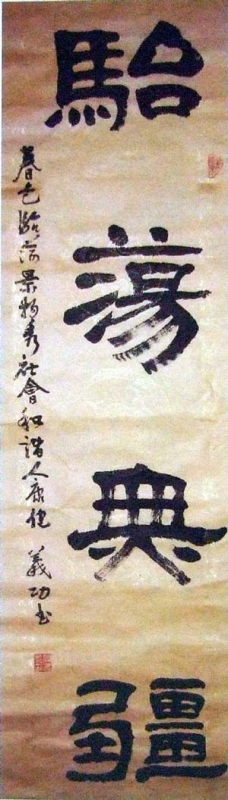 駘蕩無疆
春色駘宕景物秀社會和諧人康健 義功书